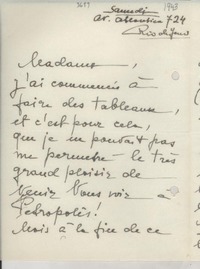 1943
Samedi
av. Atlantica 724
Rio de Janeiro
Madame,
j'ai commencé à
faire des tableaux,
et c'est pour cela,
que je ne pouvait pas
me permettre le très
grand plaisir de
venir vous voir à
Petropolis!
Mais à la fin de ce